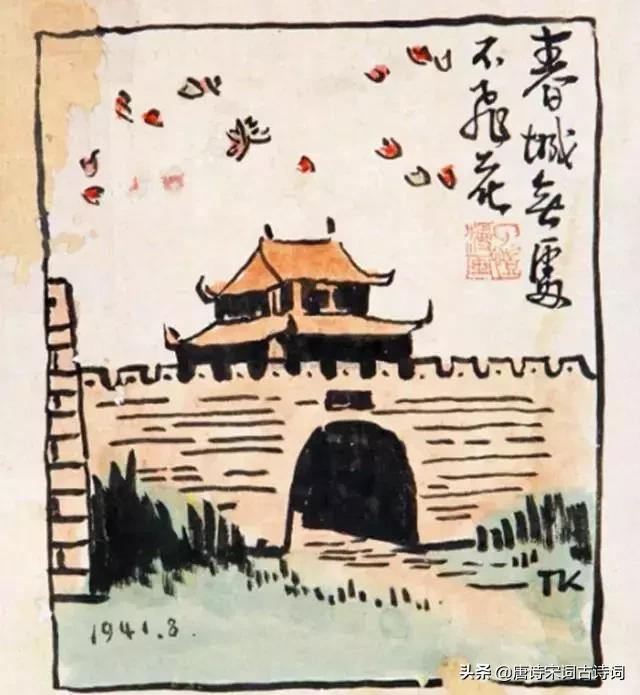 春城無處
不飛花
TK
1941.8.
头条@唐诗宋词古诗词